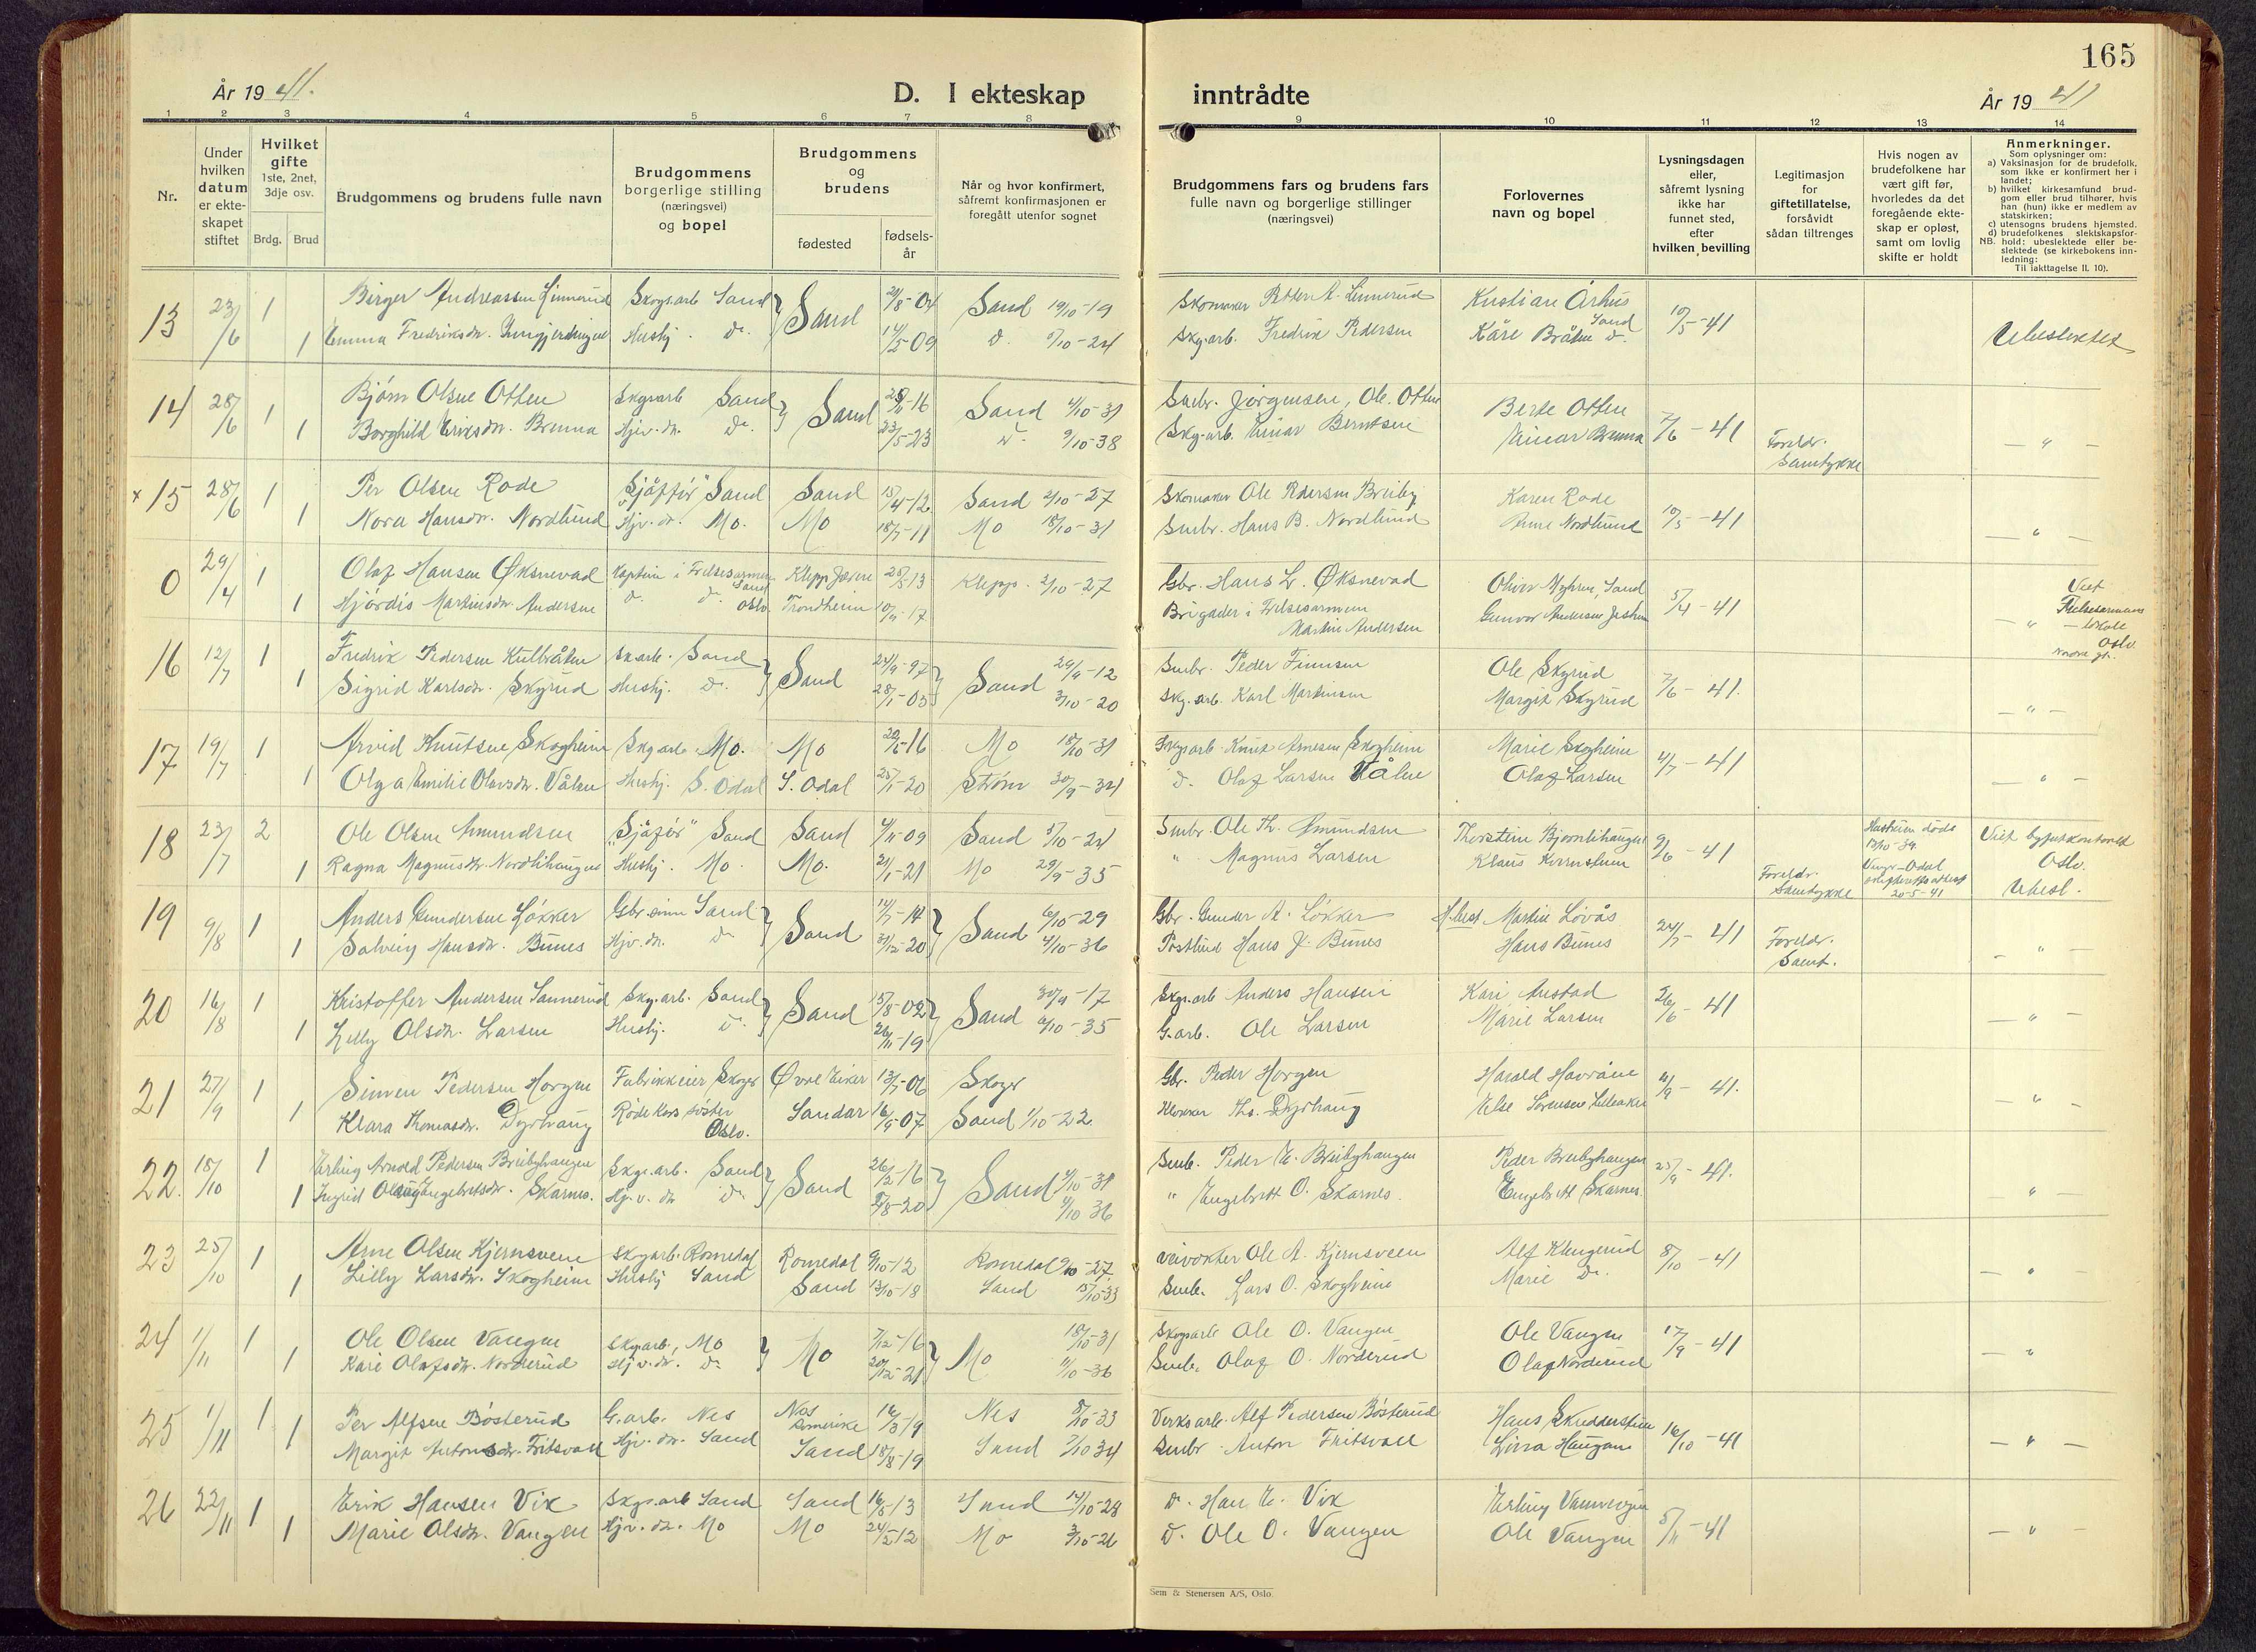 165
År 19 41.
D. I ekteskap inntrådte
År 19 41
1 2 3 4 5 6 7 8 9 10 11 12 13 14
Nr.
Under hvilken datum er ekteskapet stiftet
Hvilket gifte 1ste, 2net, 3dje osv.
Brdg. Brud
Brudgommens og brudens fulle navn
Brudgommens borgerlige stilling (næringsvei) og bopel
Brudgommens og brudens
fødested
fødsels-år
Når og hvor konfirmert, såfremt konfirmasjonen er foregått utenfor sognet
Brudgommens fars og brudens fars fulle navn og borgerlige stillinger (næringsvei)
Forlovernes navn og bopel
Lysningsdagen eller, såfremt lysning ikke har funnet sted, efter hvilken bevilling
Legitimasjon for giftetillatelse, forsåvidt sådan tiltrenges
Hvis nogen av brudefolkene har vært gift før, hvorledes da det foregående ekteskap er opløst, samt om lovlig skifte er holdt
Anmerkninger.
Som oplysninger om:
a) Vaksinasjon for de brudefolk, som ikke er konfirmert her i landet;
b) hvilket kirkesamfund brudgom eller brud tilhører, hvis han (hun) ikke er medlem av statskirken;
c) utensogns brudens hjemsted.
d) brudefolkenes slektskapsforhold: ubeslektede eller beslektede (se kirkebokens innledning:
NB.
Til iakttagelse II, 10).
13 23/6 1 Birger Andreassen Linnerud Skogsarb Sand Sand 04 Sand 19/10-19 Skomaker Linnerud Kristian Århus Sand 10/5-41 Ubeslektet
1 Emma Fredriksdr. Hushj. do 14/5-09 do 5/10-24 Skg.arb. Fredrik Pedersen Kåre Bråten do
14 28/6 1 Bjørn Olsen Otten Skgsarb Sand Sand 16 Sand 4/10-31 Smbr. Jørgensen, Ole Otten Berte Otten 7/6-41 Foreldr. Samtykke — " —
1 Borghild Eriksdr. Brenna Hjv. dr. do 23/5-23 do 9/10-38 Skg.arb. Einar Berntsen Einar Brenna
× 15 28/6 1 Per Olsen Rode "Sjåffør" Sand Sand 15/4-12 Sand 2/10-27 Skomaker Ole Pedersen Breiby Karen Rode 10/5-41 — " —
1 Nora Hansdr. Nordlund Hjv. dr. Mo. Mo 18/7-11 Mo 18/10-31 Smbr. Hans B. Nordlund Nordlund
0 29/4 1 Olaf Hansen Øksnevad Kaptein i Frelsesarmeen Sand Klepp Jæren 13 Klepp. 2/10-27 Gbr. Hans L. Øksnevad Oliver Nyhren, Sand 5/4-41 Viet Frelsesarmeens lokale Oslo — " —
1 Hjørdis Martinsdr. Andersen do do Oslo Trondheim 17 Brigader i Frelsesarmeen Martin Andersen Gunvor Andersen
16 12/7 1 Fredrik Pedersen Kulbråten Skarb. Sand Sand 24/9-97 Sand 29/9-12 Smbr. Peder Finnsen Ole Skyrud 7/6-41. — " —
1 Sigrid Karlsdr. Skyrud Hushj. do 28/1-05 3/10-20 Skg. arb. Karl Martinsen Margit Skyrud
17 19/7 1 Arvid Knutsen Skogheim Skgarb Mo. Mo 20/5-16 Mo 18/10-31 Skogsarb Knut Arnesen Skogheim Marie Skogheim 4/7-41 — " —
1 Olga Emilie Olavsdr. Vålen Hushj. S. Odal S. Odal 25/1-20 Strøm 30/9-34 do Olaf Larsen Vålen Olaf Larsen
18 23/7 2 Ole Olsen Amundsen "Sjåfør" Sand Sand 4/11-09 Sand 5/10-24 Smbr. Ole Th. Amundsen Thorstein Bjørnlihaugen 9/6-41 Foreldr. Samtykke Hustruen døds 13/10-39 20-5-41 Viet byfutkontoret Oslo. Ubesl.
1 Ragna Magnusdr. Nordlihaugen Hushj. Mo. Mo. 21/1-21 Mo 29/9-35 " Magnus Larsen Klaus
19 9/8 1 Anders Gundersen Løkker Gbr.sønn Sand Sand 14/7-14 Sand 6/10-29 Gbr. Gunder A. Løkker Martin Løvås 24/7-41 Foreldr. Samt. — " —
1 Solveig Hansdr. Bunes Hjv. dr. do 31/12-20 4/10-36 Hans J. Bunes Hans Bunes
20 16/8 1 Kristoffer Andersen Sannerud Skg.arb. Sand Sand 15/8-02 Sand 30/9-17 Skgs.arb Anders Hansen Kari Austad 26/6-41 — " —
1 Lilly Olsdr. Larsen Hushj. do 26/11-19 6/10-35 G.arb. Ole Larsen Marie Larsen
21 27/9 1 Simen Pedersen Horgen Fabrikkeier Skoger Øvre Eiker 13/7-06 Skoger Gbr. Peder Horgen Harald Havråne 4/9-41. — " —
1 Klara Thomasdr. Dyrhaug Røde Kors søster Oslo. Sandar 16/9-07 Sand 1/10-22 Klokker Ths. Dyrhaug Else Sørensen Lilleaker
22. 18/10 1 Erling Arnold Pedersen Breibyhaugen Skgs.arb. Sand Sand 26/2-16 Sand 4/10-31 Smb. Peder E. Breibyhaugen Peder Breibyhaugen 25/9-41. — " —
1 Ingrid Olaug Engebretsdr. Skarnes. Hj.v.dr do 8-20 4/10 36 " Engebrett O. Skarnes. Engebrett Skarnes.
23 25/10 1 Arne Olsen Kjernsveen Skgarb. Romedal Romedal 9/10-12 Romedal 9/10-27 Veivokter Ole A. Kjernsveen Alf Klengerud 8/10-41 — " —
1 Lilly Larsdr. Skogheim Hushj Sand Sand 13/10-18 Sand 15/10-33 Smb. Lars O. Skogheim Marie do.
24 1/11 1 Ole Olsen Vangen Skg.arb., Mo Mo 7/12-16 Mo 18/10-31 Skogsarb Ole O. Vangen Ole Vangen 17/9-41 — " —
1 Kari Olafsdr. Norderud Hjv.dr. do 20/12-21 11/10-36 Smb. Olaf O. Norderud Olaf Norderud
25 1/11 1 Per Alfsen Bøsterud G.arb. Nes Nes Romerike 16/3-19 Nes 8/10-33 Verksarb. Alf Pedersen Bøsterud Hans Skuddersteen 16/10-41 — " —
1 Margit Antonsdr. Fritsvall Hjv. dr. Sand Sand 18/8-19 Sand 7/10 34 Smbr Anton Fritsvall Haugan
26 22/11 1 Erik Hansen Vik Skgs.arb Sand Sand 16/5-13 Sand 14/10-28 do. Hans E. Vik Erling 5/11-41 — " —
1 Marie Olsdr. Vangen Hjv. dr. Mo Mo 24/5-12 Mo 3/10-26 do. Ole O. Vangen Ole Vangen
Sem & Stenersen A/S, Oslo.